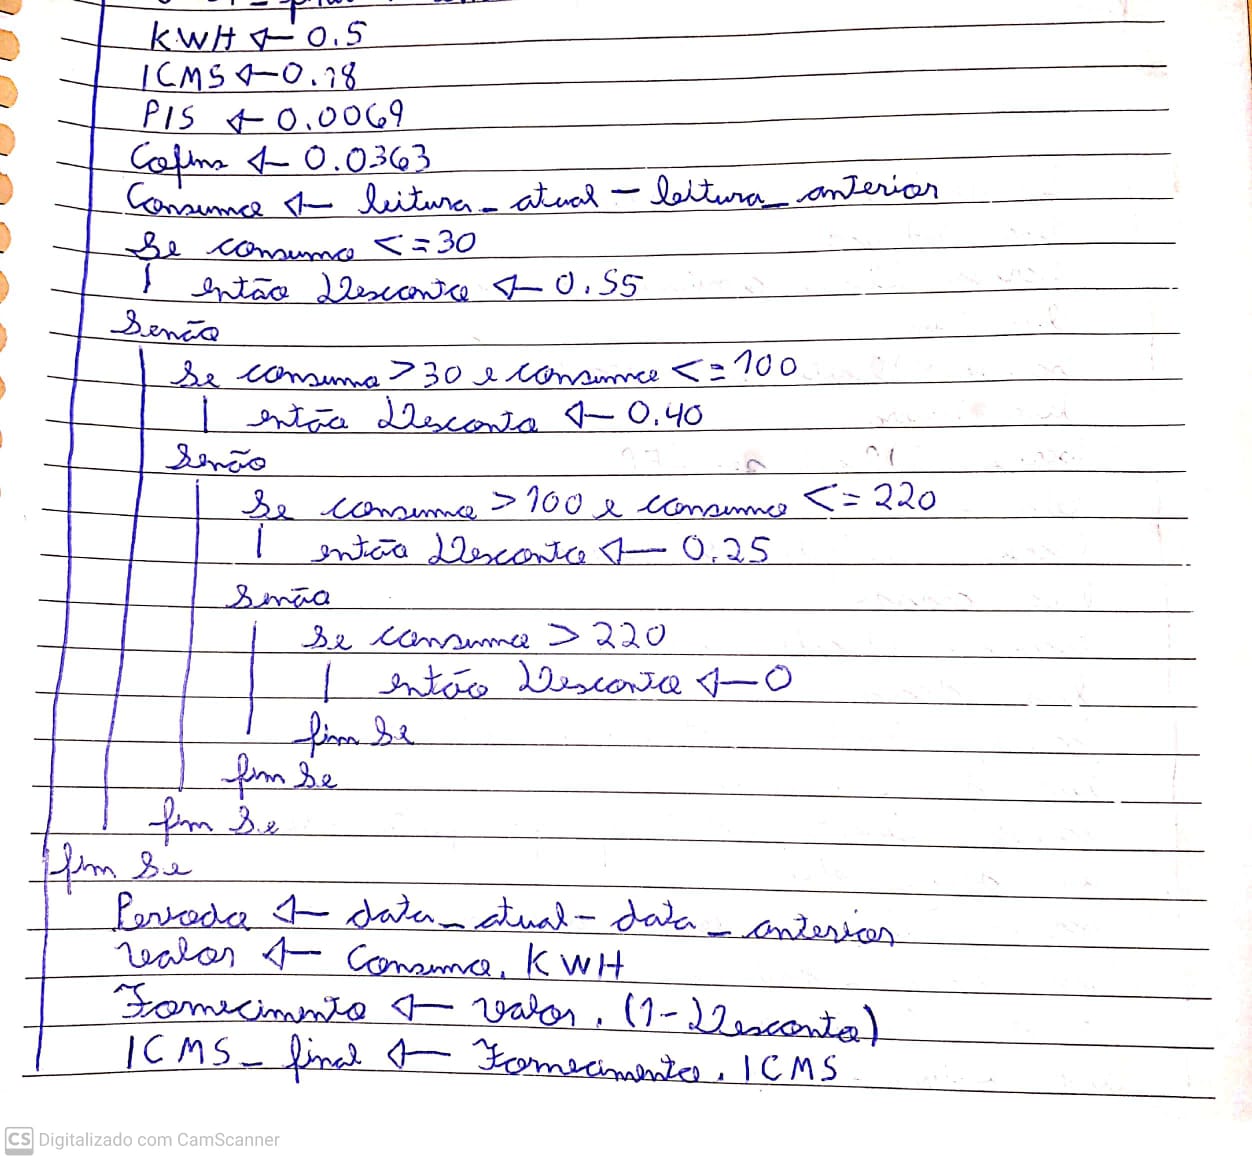 KWH ← 0.5
ICMS ← 0.18
PIS ← 0.0069
Cofins ← 0.0363
Consumo ← leitura_atual - leitura_anterior
Se consumo <= 30
então Desconto ← 0.55
Senão
Se consumo > 30 e consumo <= 100
então Desconto ← 0.40
Senão
Se consumo > 100 e consumo <= 220
então Desconto ← 0.25
Senão
Se consumo > 220
então Desconto ← 0
fim Se
fim Se
fim Se
fim Se
Periodo ← data_atual - data_anterior
Valor ← Consumo . KWH
Fornecimento ← valor . (1 - Desconto)
ICMS_final ← Fornecimento . ICMS
CS Digitalizado com CamScanner